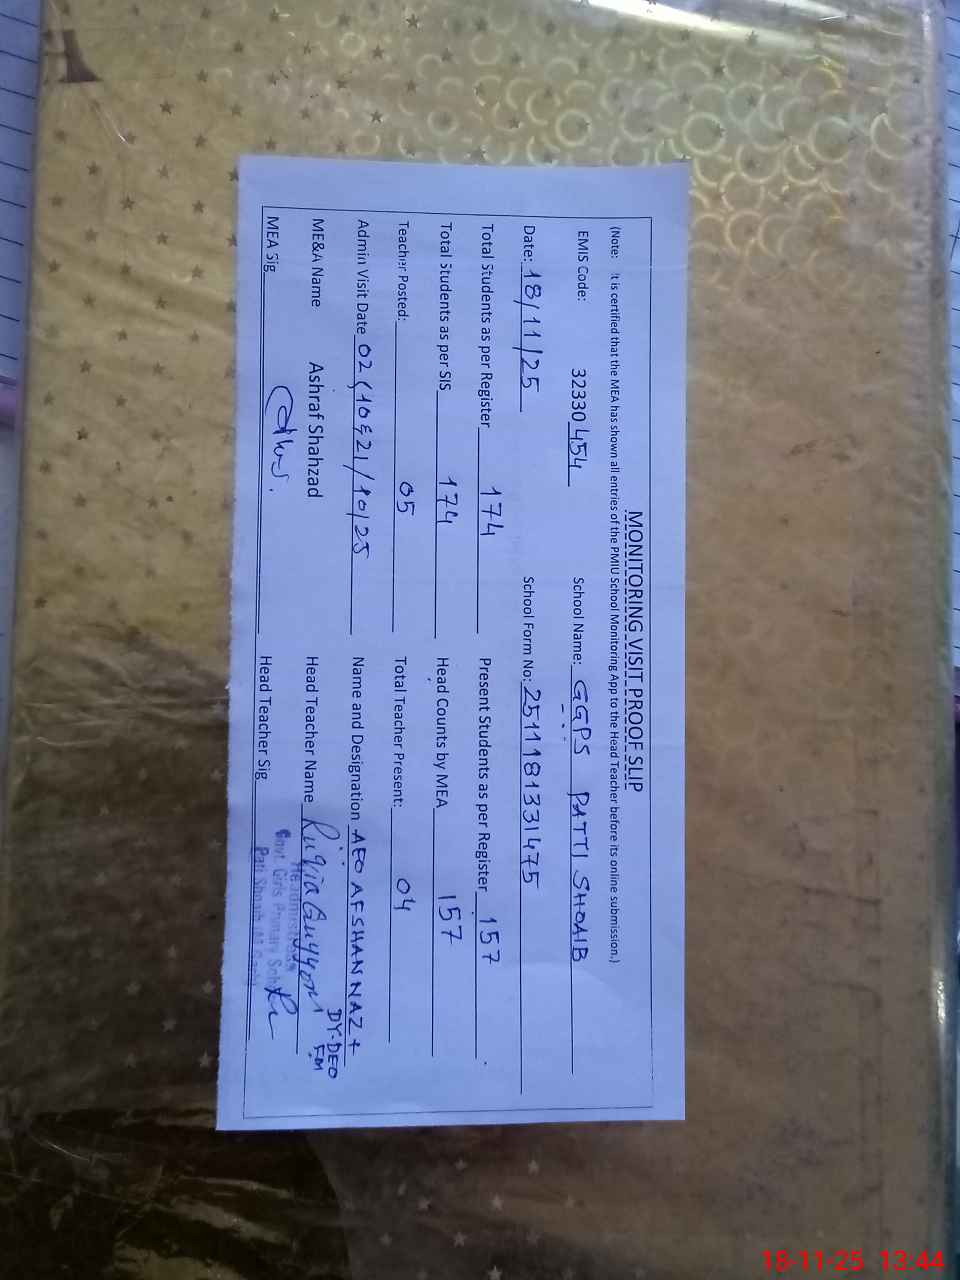 MONITORING VISIT PROOF SLIP
(Note: It is certified that the MEA has shown all entries of the PMIU School Monitoring App to the Head Teacher before its online submission.)
EMIS Code: 32330454 School Name: GGPS PATTI SHOAIB
Date: 18/11/25 School Form No: 2511181331475
Total Students as per Register 174 Present Students as per Register 157
Total Students as per SIS 174 Head Counts by MEA 157
Teacher Posted: 05 Total Teacher Present: 04
Admin Visit Date 02,10&21/10/25 Name and Designation AEO AFSHAN NAZ + DY-DEO
ME&A Name Ashraf Shahzad Head Teacher Name Ruqia
MEA Sig Head Teacher Sig
Headmistress
Govt. Girls Primary School
18-11-25 13:44